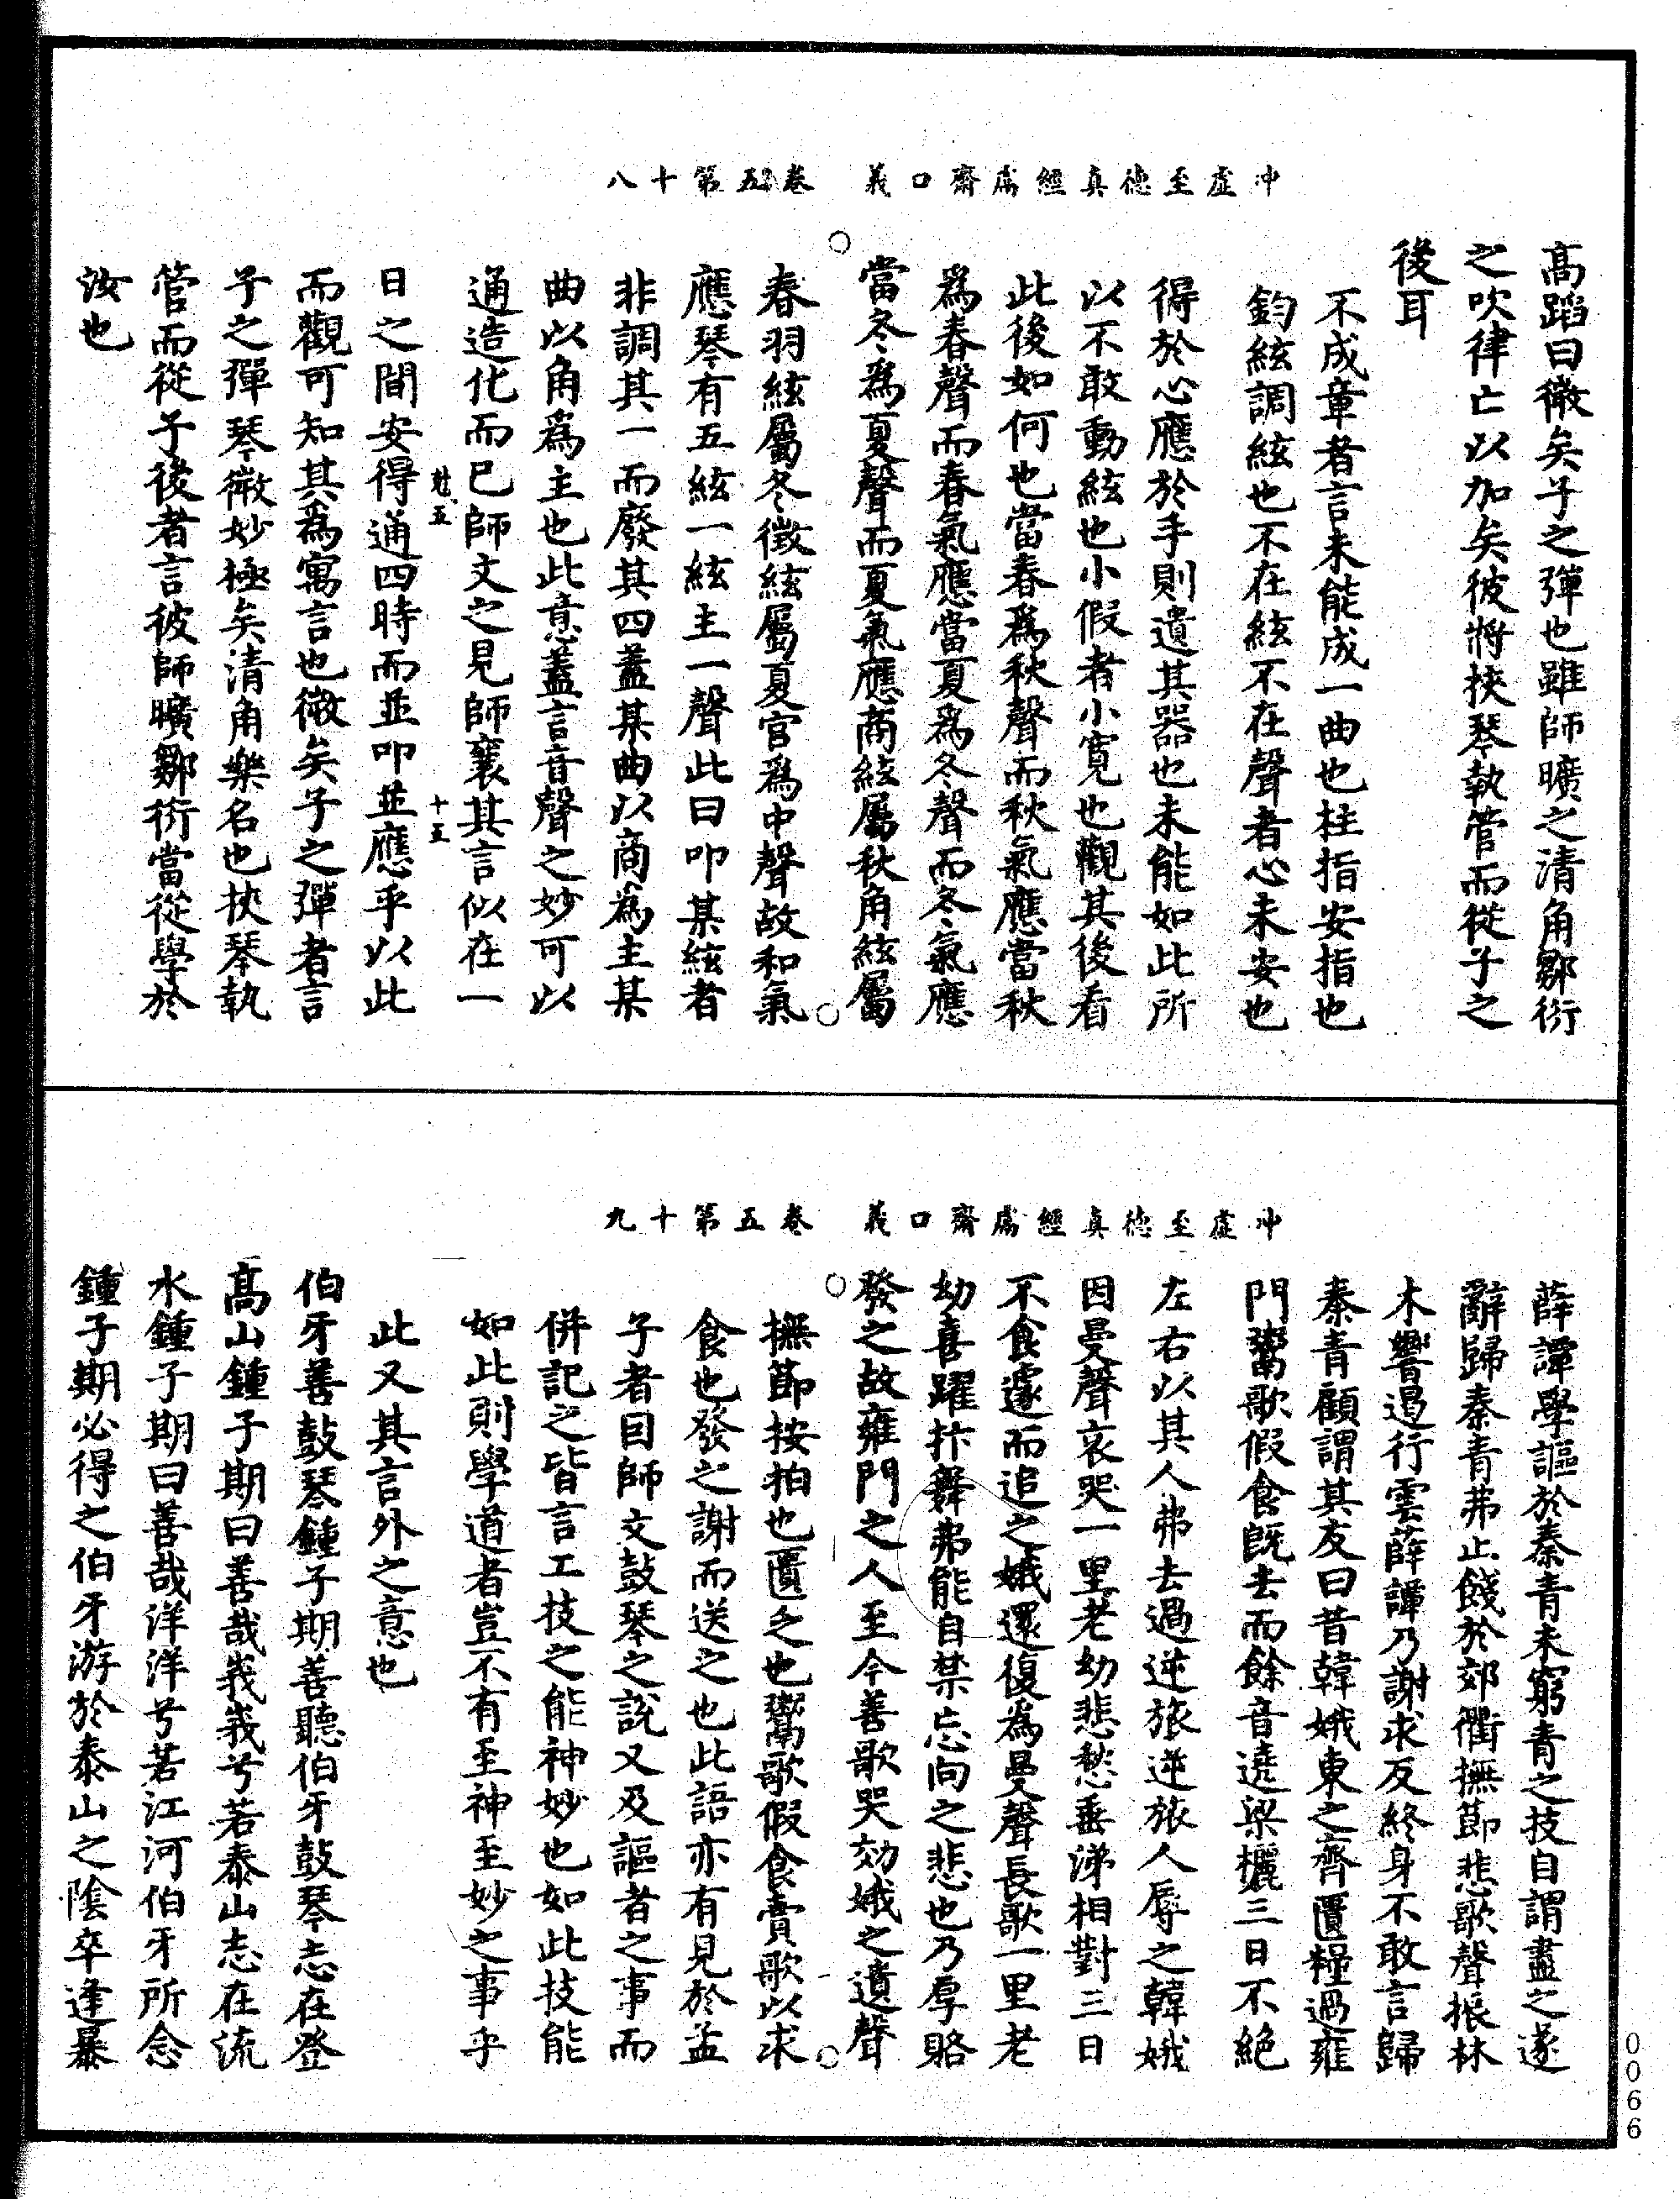 冲虛至德真經鬳齋口義　卷五第十八
高蹈曰微矣子之彈也雖師曠之清角鄒衍
之吹律亡以加矣彼將挾琴執管而從子之
後耳
不成章者言未能成一曲也柱指安指也
鈞絃調絃也不在絃不在聲者心未安也
得於心應於手則遺其器也未能如此所
以不敢動絃也小假者小寬也觀其後看
此後如何也當春爲秋聲而秋氣應當秋
爲春聲而春氣應當夏爲冬聲而冬氣應
當冬爲夏聲而夏氣應商絃屬秋角絃屬
春羽絃屬冬徵絃屬夏宫爲中聲故和氣
應琴有五絃一絃主一聲此曰叩某絃者
非調其一而廢其四蓋某曲以商爲主某
曲以角爲主也此意蓋言音聲之妙可以
通造化而已師文之見師襄其言似在一
尅五　十五
日之間安得通四時而並叩並應乎以此
而觀可知其爲寓言也微矣子之彈者言
子之彈琴微妙極矣清角樂名也挾琴執
管而從子後者言彼師曠鄒衍當從學於
汝也
冲虛至德真經鬳齋口義　卷五第十九
薛譚學謳於秦青未窮青之技自謂盡之遂
辭歸秦青弗止餞於郊衢撫節悲歌聲振林
木響遏行雲薛譚乃謝求反終身不敢言歸
秦青顧謂其友曰昔韓娥東之齊匱糧過雍
門鬻歌假食旣去而餘音遶梁欐三日不絕
左右以其人弗去過逆旅逆旅人辱之韓娥
因曼聲哀哭一里老幼悲愁垂涕相對三日
不食遽而追之娥還復爲曼聲長歌一里老
幼喜躍抃舞弗能自禁忘向之悲也乃厚賂
發之故雍門之人至今善歌哭効娥之遺聲
撫節按拍也匱乏也鬻歌假食賣歌以求
食也發之謝而送之也此語亦有見於孟
子者因師文鼓琴之說又及謳者之事而
併記之皆言工技之能神妙也如此技能
如此則學道者豈不有至神至妙之事乎
此又其言外之意也
伯牙善鼓琴鍾子期善聽伯牙鼓琴志在登
高山鍾子期曰善哉峩峩兮若泰山志在流
水鍾子期曰善哉洋洋兮若江河伯牙所念
鍾子期必得之伯牙游於泰山之陰卒逢暴
0066